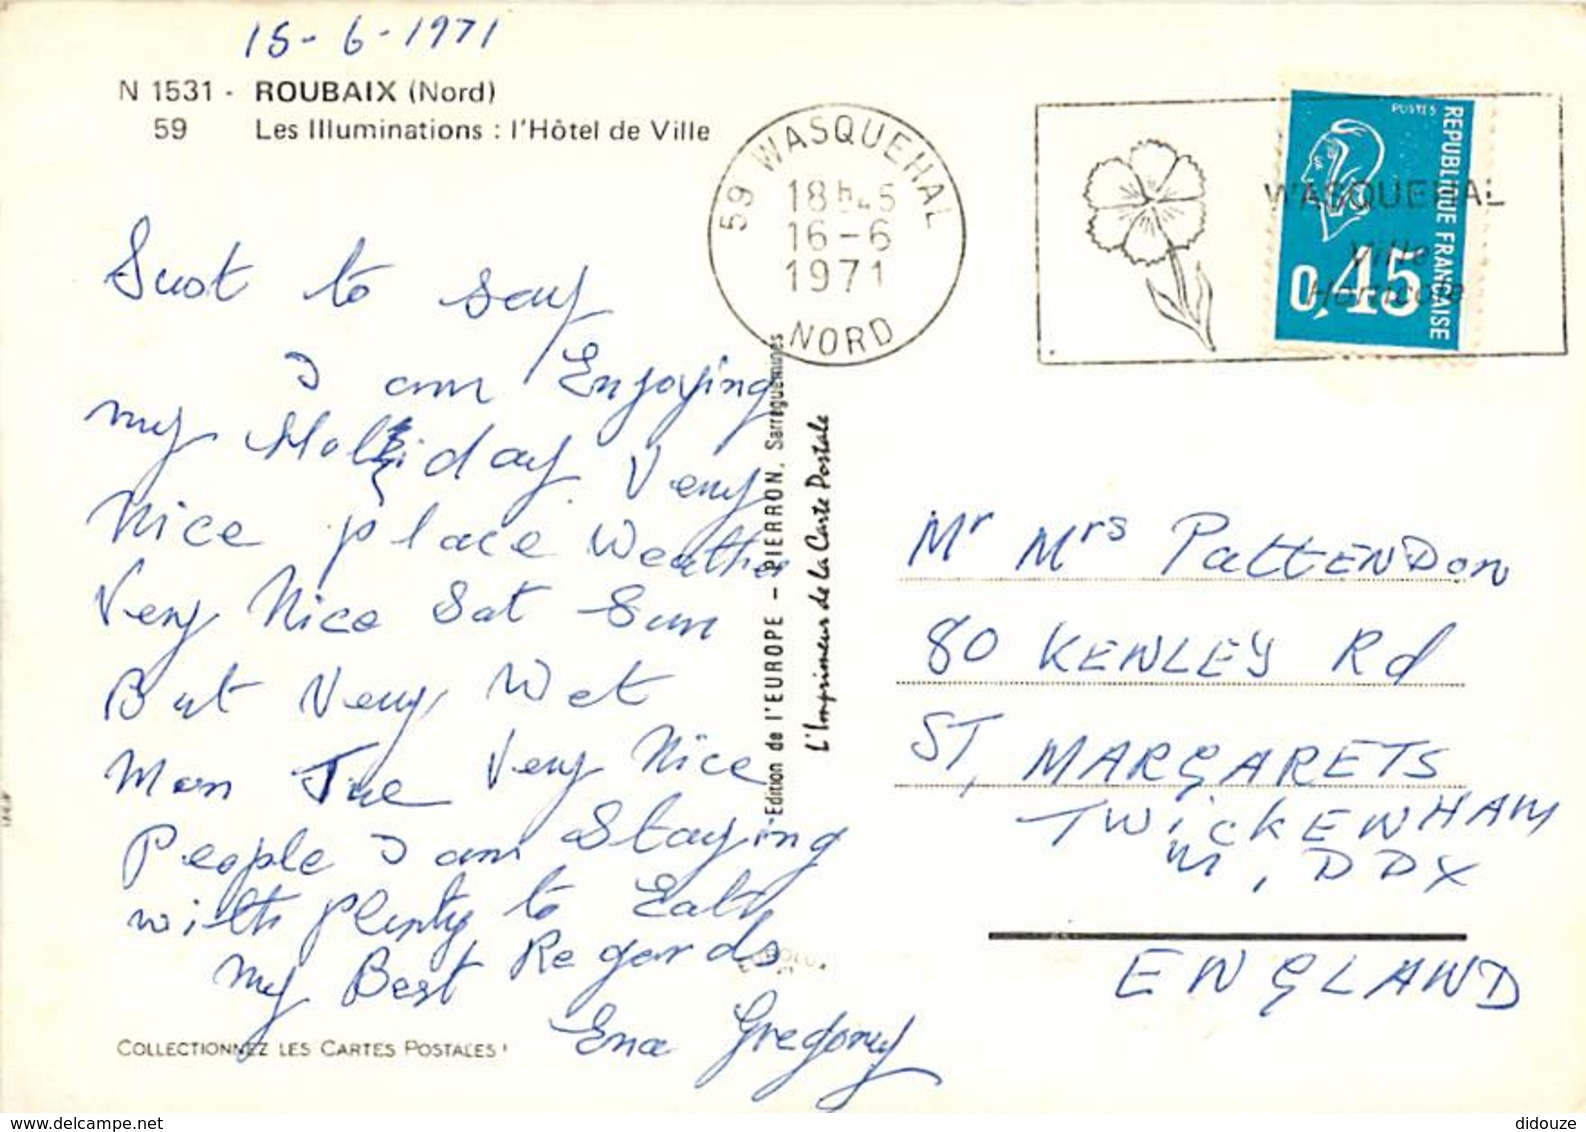 15-6-1971
N 1531 - ROUBAIX (Nord)
59 Les Illuminations : l'Hôtel de Ville
59 WASQUEHAL
18h45
16-6
1971
NORD
WASQUEHAL
Ville
Horticole
POSTES
REPUBLIQUE FRANCAISE
0,45
Just to say
I am Enjoying
my Holiday Very
Nice place Weather
Very Nice Sat Sun
But Very Wet
Mon Tue Very Nice
People I am Staying
with plenty to Eat
My Best Regards
Ena Gregory
Edition de l'EUROPE - PIERRON, Sarreguemines
L'Imprimeur de la Carte Postale
Mr Mrs PattENDon
80 KENLEY Rd
ST, MARGARETS
TWickENHAM
M, DDX
ENGLAND
COLLECTIONNEZ LES CARTES POSTALES !
www.delcampe.net
didouze